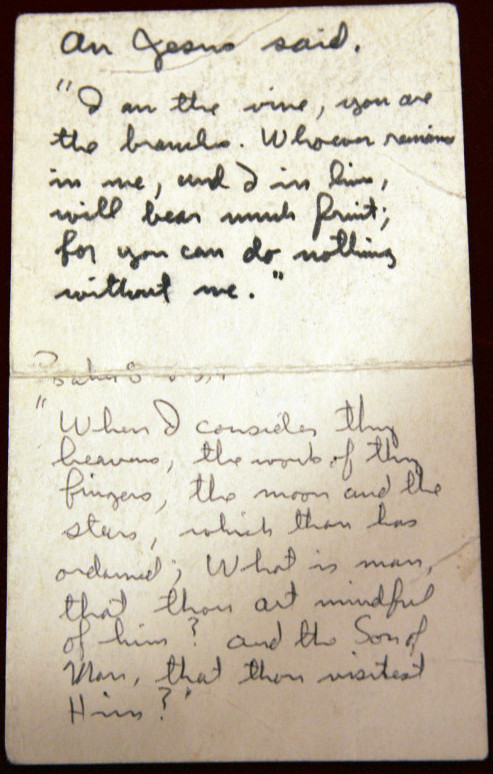 As Jesus said,
"I am the vine, you are
the branches. Whoever remains
in me, and I in him,
will bear much fruit;
for you can do nothing
without me."
Psalms 8
"When I consider thy
heavens, the work of thy
fingers, the moon and the
stars, which thou has
ordained; What is man,
that thou art mindful
of him? and the Son of
Man, that thou visitest
Him?"